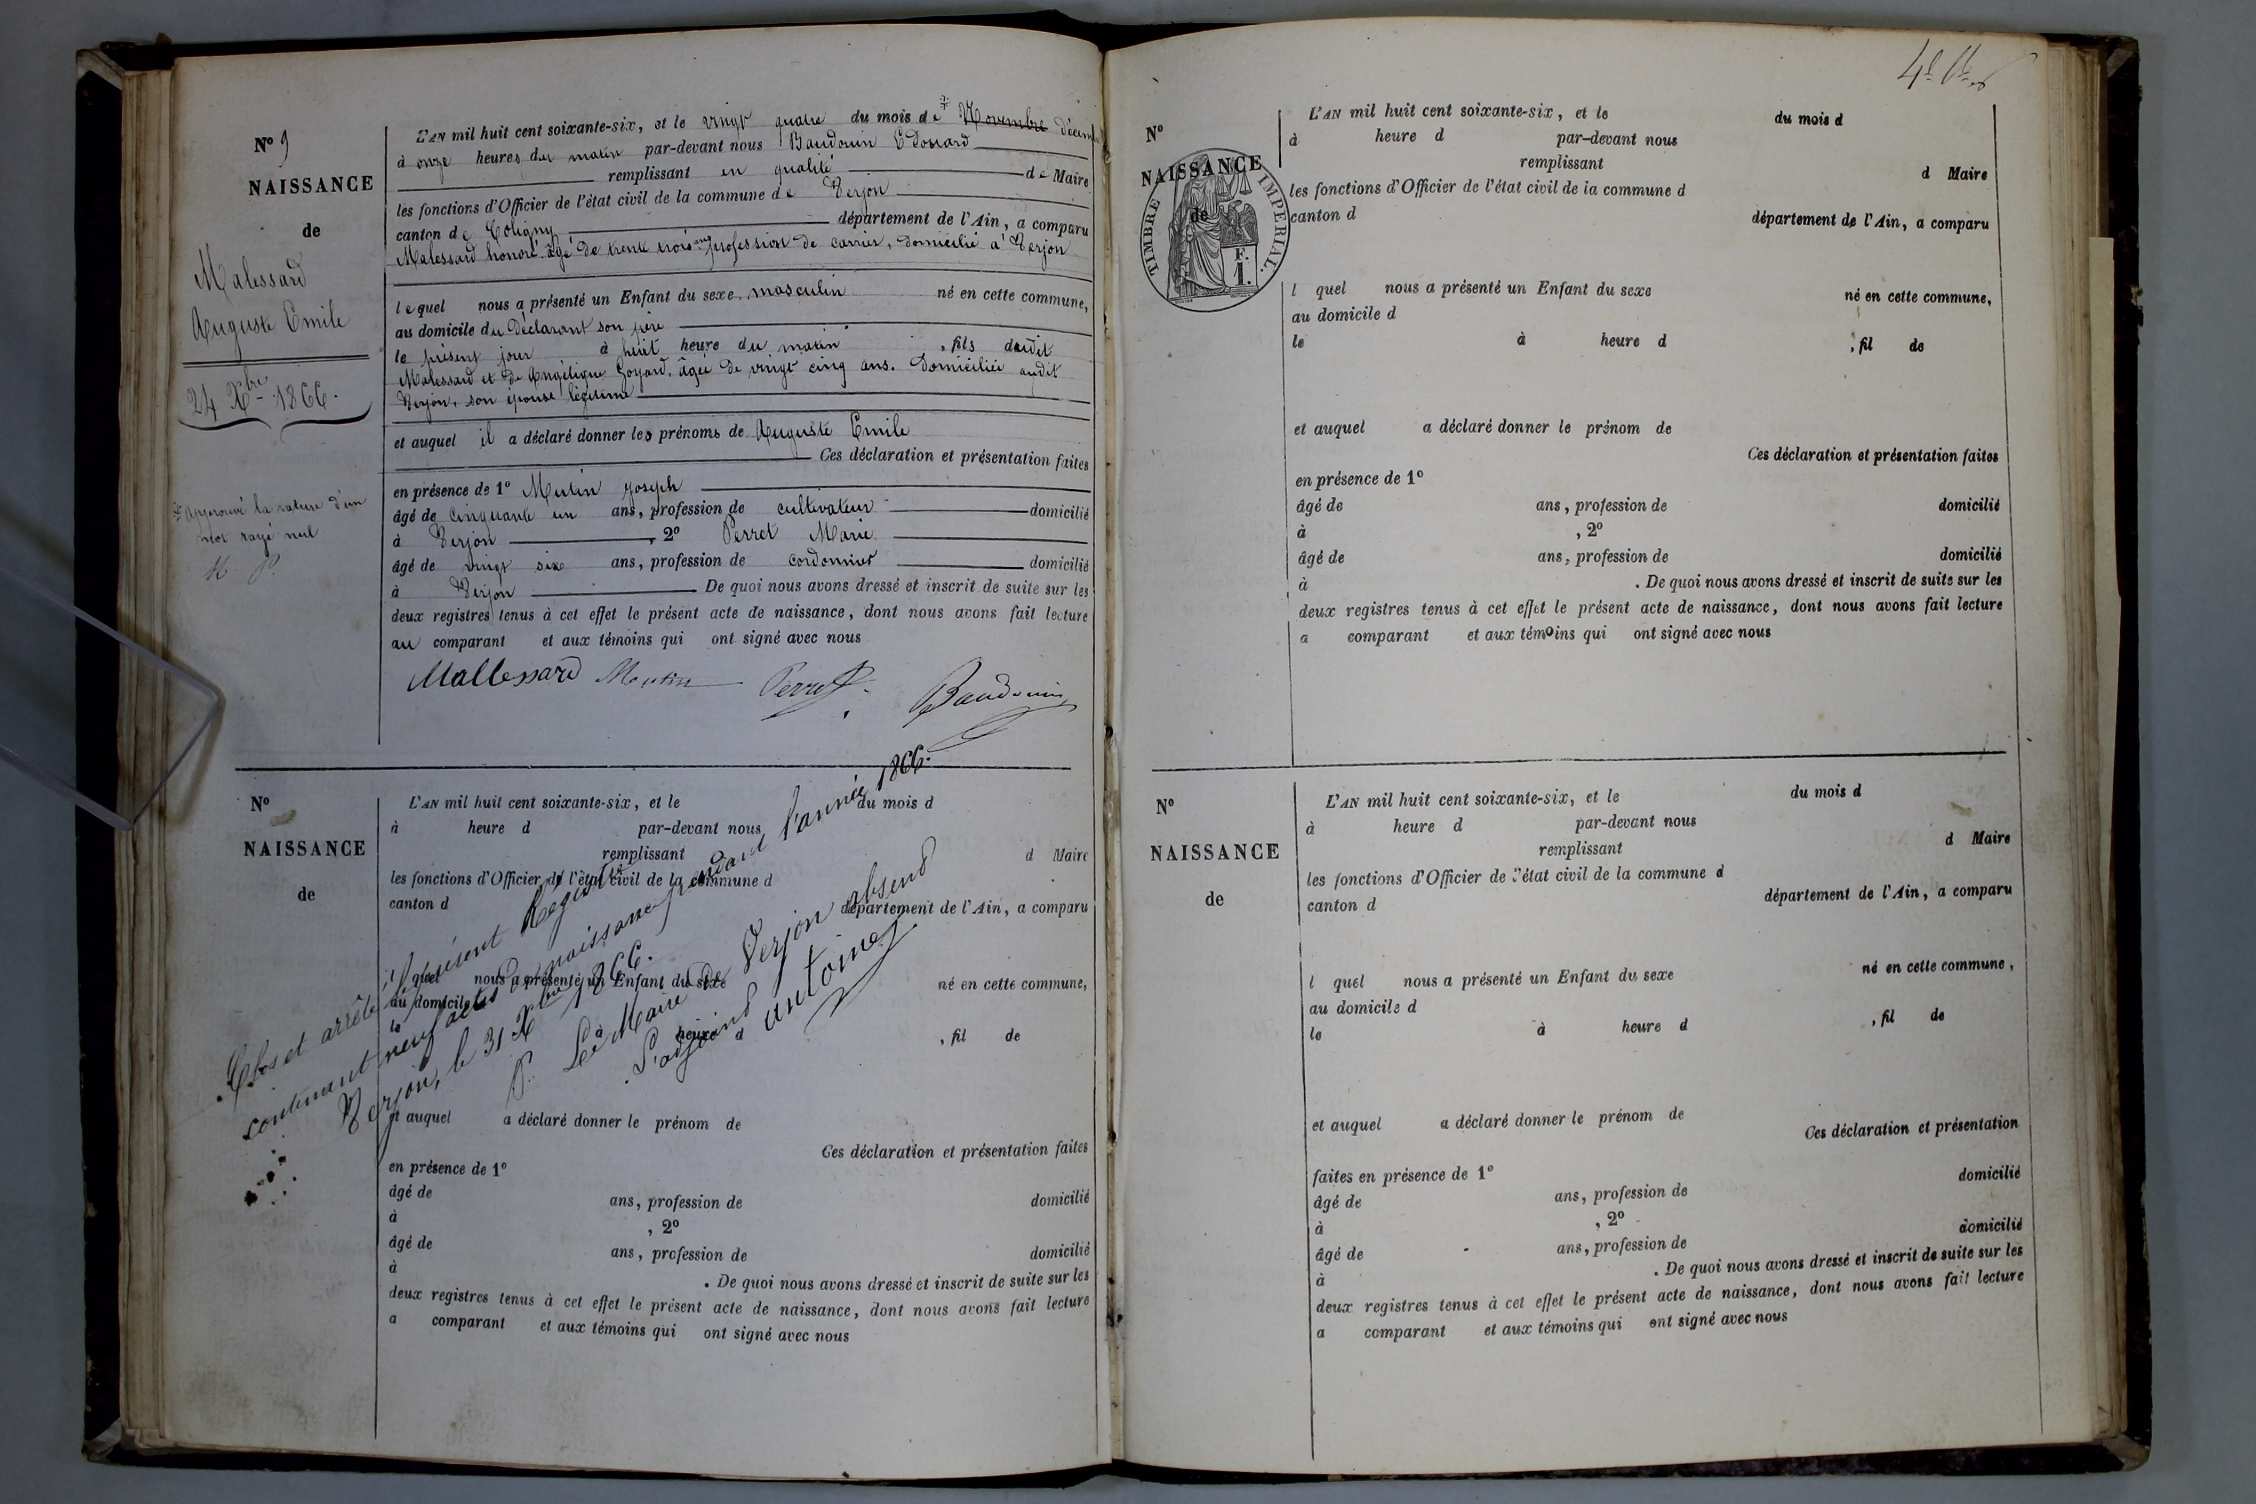 N° 9
NAISSANCE
de
Malessard
Auguste Emile
24 Xbre 1866.
* Approuvé la rature d'un
mot rayé nul
L'AN mil huit cent soixante-six, et le vingt quatre du mois de * Novembre décembre
à onze heures du matin par-devant nous Baudouin Edouard
remplissant en qualité de Maire
les fonctions d'Officier de l'état civil de la commune de Verjon
canton de Coligny département de l'Ain, a comparu
Malessard honoré âgé de trente trois ans profession de carrier, domicilié à Verjon
lequel nous a présenté un Enfant du sexe masculin né en cette commune,
au domicile du Déclarant son père
le présent jour à huit heure du matin , fils dudit
Malessard et de Angélique Goyard, âgée de vingt cinq ans. Domiciliée audit
Verjon, son épouse légitime
et auquel il a déclaré donner les prénoms de Auguste Emile
Ces déclaration et présentation faites
en présence de 1° Mutin Joseph
âgé de cinquante un ans, profession de cultivateur domicilié
à Verjon , 2° Perret Marie
âgé de vingt six ans, profession de cordonnier domicilié
à Verjon De quoi nous avons dressé et inscrit de suite sur les
deux registres tenus à cet effet le présent acte de naissance, dont nous avons fait lecture
au comparant et aux témoins qui ont signé avec nous
Mallessard Mutin Perret Baudouin
N°
NAISSANCE
de
L'AN mil huit cent soixante-six, et le du mois d
à heure d par-devant nous
remplissant d Maire
les fonctions d'Officier de l'état civil de la commune d
canton d département de l'Ain, a comparu
l quel nous a présenté un Enfant du sexe né en cette commune,
au domicile d
le à heure d , fil de
et auquel a déclaré donner le prénom de
Ces déclaration et présentation faites
en présence de 1°
âgé de ans, profession de domicilié
à , 2°
âgé de ans, profession de domicilié
à . De quoi nous avons dressé et inscrit de suite sur les
deux registres tenus à cet effet le présent acte de naissance, dont nous avons fait lecture
a comparant et aux témoins qui ont signé avec nous
Clos et arrêté le présent Registre
contenant neuf actes de naissance pendant l'année 1866.
Verjon, le 31 Xbre 1866.
P. Le Maire de Verjon absend
L'adjoind antoine
N°
NAISSANCE
de
TIMBRE IMPERIAL.
F.
1.
L'AN mil huit cent soixante-six, et le du mois d
à heure d par-devant nous
remplissant d Maire
les fonctions d'Officier de l'état civil de la commune d
canton d département de l'Ain, a comparu
l quel nous a présenté un Enfant du sexe né en cette commune,
au domicile d
le à heure d , fil de
et auquel a déclaré donner le prénom de
Ces déclaration et présentation faites
en présence de 1°
âgé de ans, profession de domicilié
à , 2°
âgé de ans, profession de domicilié
à . De quoi nous avons dressé et inscrit de suite sur les
deux registres tenus à cet effet le présent acte de naissance, dont nous avons fait lecture
a comparant et aux témoins qui ont signé avec nous
N°
NAISSANCE
de
L'AN mil huit cent soixante-six, et le du mois d
à heure d par-devant nous
remplissant d Maire
les fonctions d'Officier de l'état civil de la commune d
canton d département de l'Ain, a comparu
l quel nous a présenté un Enfant du sexe né en cette commune,
au domicile d
le à heure d , fil de
et auquel a déclaré donner le prénom de
Ces déclaration et présentation
faites en présence de 1°
âgé de ans, profession de domicilié
à , 2°
âgé de ans, profession de domicilié
à . De quoi nous avons dressé et inscrit de suite sur les
deux registres tenus à cet effet le présent acte de naissance, dont nous avons fait lecture
a comparant et aux témoins qui ont signé avec nous